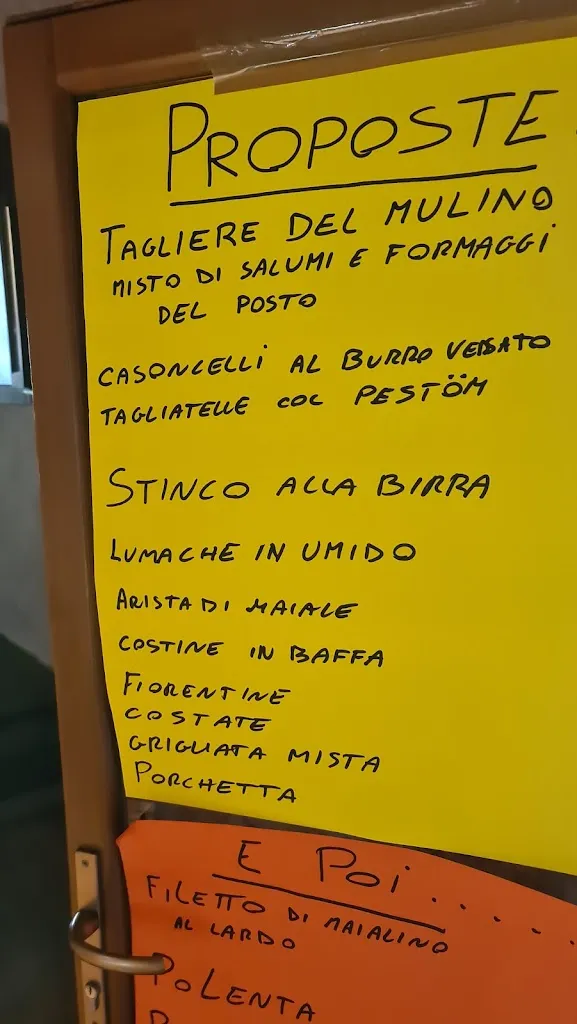 PROPOSTE
TAGLIERE DEL MULINO
MISTO DI SALUMI E FORMAGGI
DEL POSTO
CASONCELLI AL BURRO VERSATO
TAGLIATELLE COL PESTÖM
STINCO ALLA BIRRA
LUMACHE IN UMIDO
ARISTA DI MAIALE
COSTINE IN BAFFA
FIORENTINE
COSTATE
GRIGLIATA MISTA
PORCHETTA
E POI......
FILETTO DI MAIALINO
AL LARDO
POLENTA